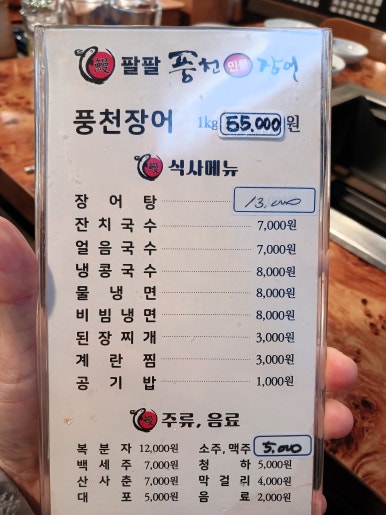 팔팔 풍천 민물 장어
풍천장어 1kg 55.000원
식사메뉴
장어탕 13,000
잔치국수 7,000원
얼음국수 7,000원
냉콩국수 8,000원
물냉면 8,000원
비빔냉면 8,000원
된장찌개 3,000원
계란찜 3,000원
공기밥 1,000원
주류, 음료
복분자 12,000원 소주, 맥주 5,000
백세주 7,000원 청하 5,000원
산사춘 7,000원 막걸리 4,000원
대포 5,000원 음료 2,000원